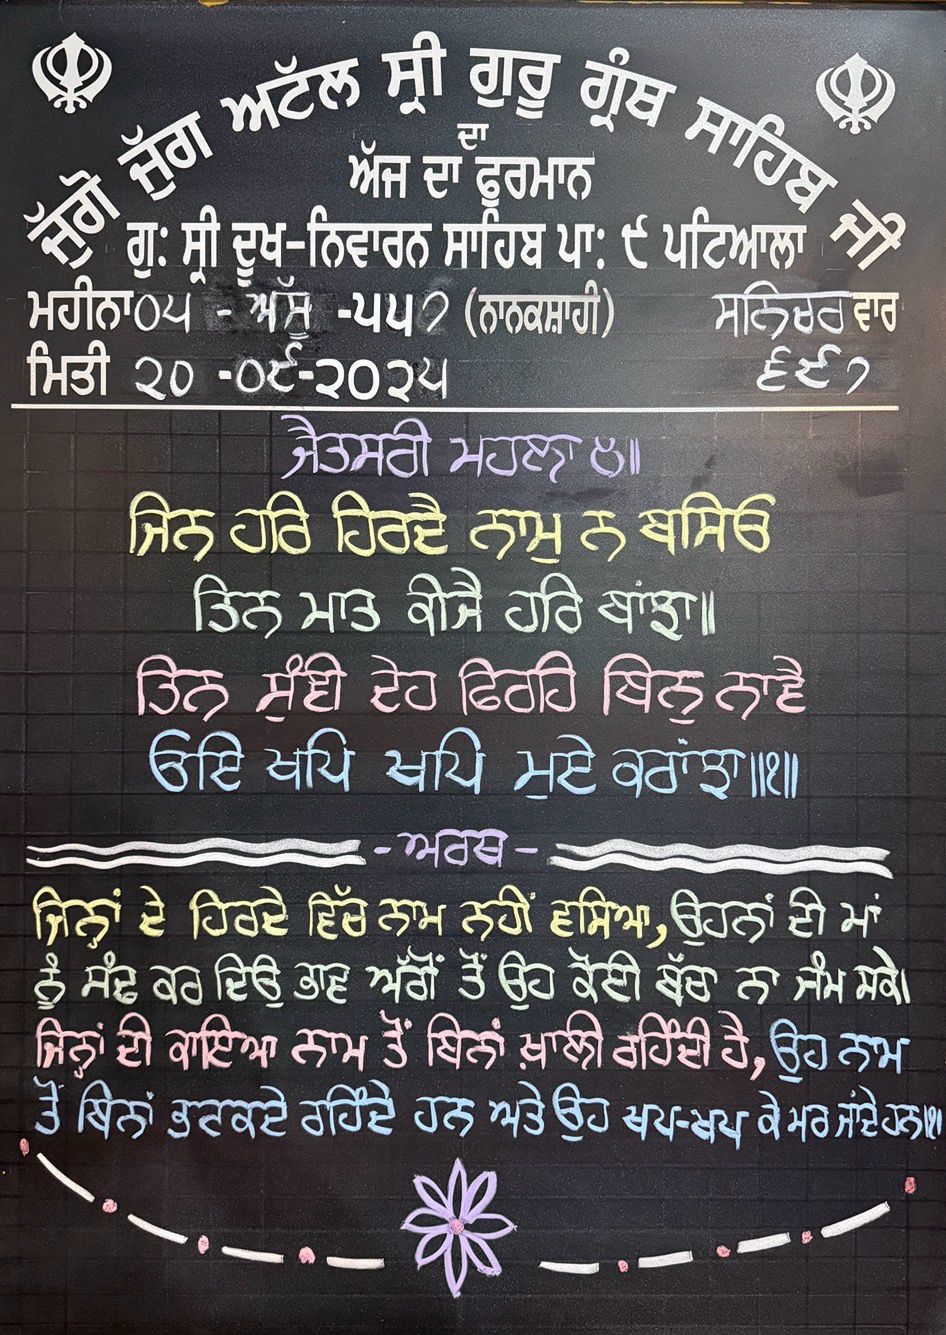 ਜੁੱਗੋ ਜੁੱਗ ਅਟੱਲ ਸ੍ਰੀ ਗੁਰੂ ਗ੍ਰੰਥ ਸਾਹਿਬ ਜੀ
ਦਾ
ਅੱਜ ਦਾ ਫੂਰਮਾਨ
ਗੁ: ਸ੍ਰੀ ਦੂਖ-ਨਿਵਾਰਨ ਸਾਹਿਬ ਪਾ: ੯ ਪਟਿਆਲਾ
ਮਹੀਨਾ ੦੫ - ਅੱਸੂ -੫੫੭ (ਨਾਨਕਸ਼ਾਹੀ) ਸਨਿਚਰ ਵਾਰ
ਮਿਤੀ ੨੦ -੦੯-੨੦੨੫ ੬੯੭
ਜੈਤਸਰੀ ਮਹਲਾ ੪॥
ਜਿਨ ਹਰਿ ਹਿਰਦੈ ਨਾਮੁ ਨ ਬਸਿਓ
ਤਿਨ ਮਾਤ ਕੀਜੈ ਹਰਿ ਬਾਂਝਾ॥
ਤਿਨ ਸੁੰਞੀ ਦੇਹ ਫਿਰਹਿ ਬਿਨੁ ਨਾਵੈ
ਓਇ ਖਪਿ ਖਪਿ ਮੁਏ ਕਰਾਂਝਾ॥੧॥
- ਅਰਥ -
ਜਿਨ੍ਹਾਂ ਦੇ ਹਿਰਦੇ ਵਿੱਚ ਨਾਮ ਨਹੀਂ ਵਸਿਆ, ਉਹਨਾਂ ਦੀ ਮਾਂ
ਨੂੰ ਸੰਢ ਕਰ ਦਿਉ ਭਾਵ ਅੱਗੋਂ ਤੋਂ ਉਹ ਕੋਈ ਬੱਚਾ ਨਾ ਜੰਮ ਸਕੇ।
ਜਿਨ੍ਹਾਂ ਦੀ ਕਾਇਆ ਨਾਮ ਤੋਂ ਬਿਨਾਂ ਖ਼ਾਲੀ ਰਹਿੰਦੀ ਹੈ, ਉਹ ਨਾਮ
ਤੋਂ ਬਿਨਾਂ ਭਟਕਦੇ ਰਹਿੰਦੇ ਹਨ ਅਤੇ ਉਹ ਖਪ-ਖਪ ਕੇ ਮਰ ਜਾਂਦੇ ਹਨ॥੧॥